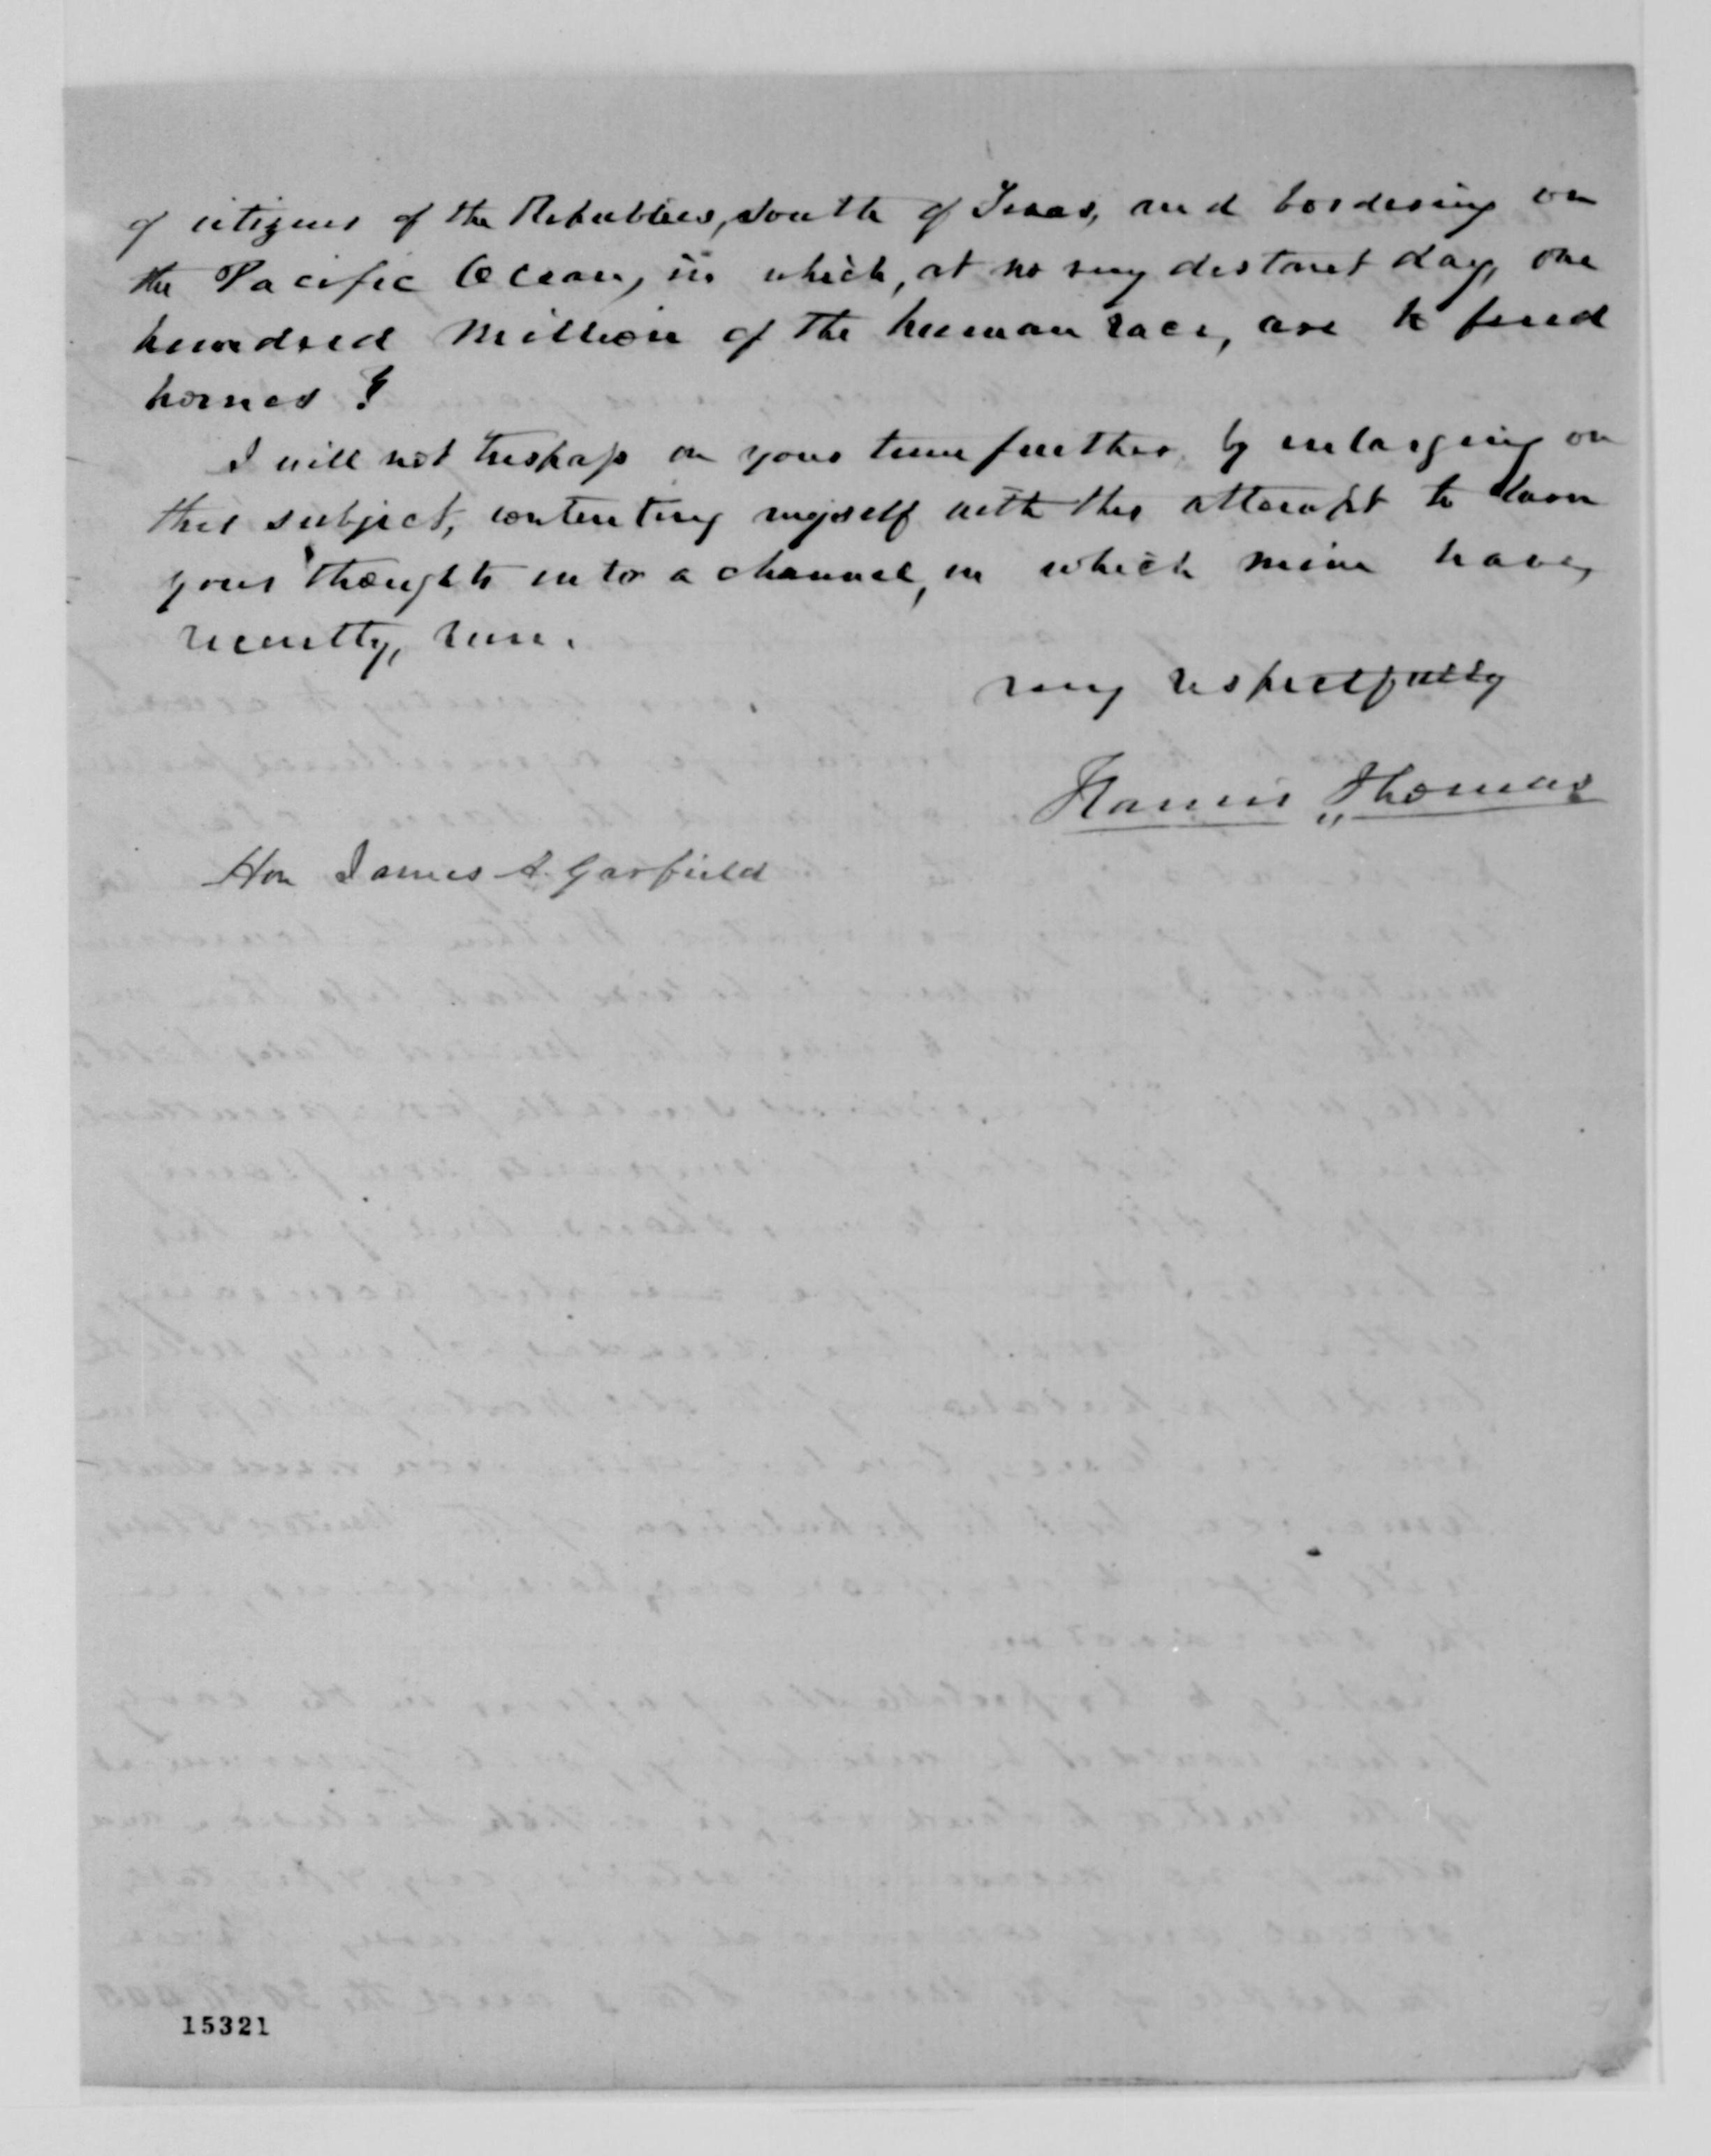 of citizens of the Republics, South of Texas, and bordering on
the Pacific Ocean, in which, at no very distant day, one
hundred Million of the human race, are to find
homes?
I will not trespass on your time further by enlarging on
this subject, contenting myself with this attempt to turn
your thoughts into a channel, in which mine have,
recently, run.
very respectfully
Francis Thomas
Hon James A. Garfield
15321